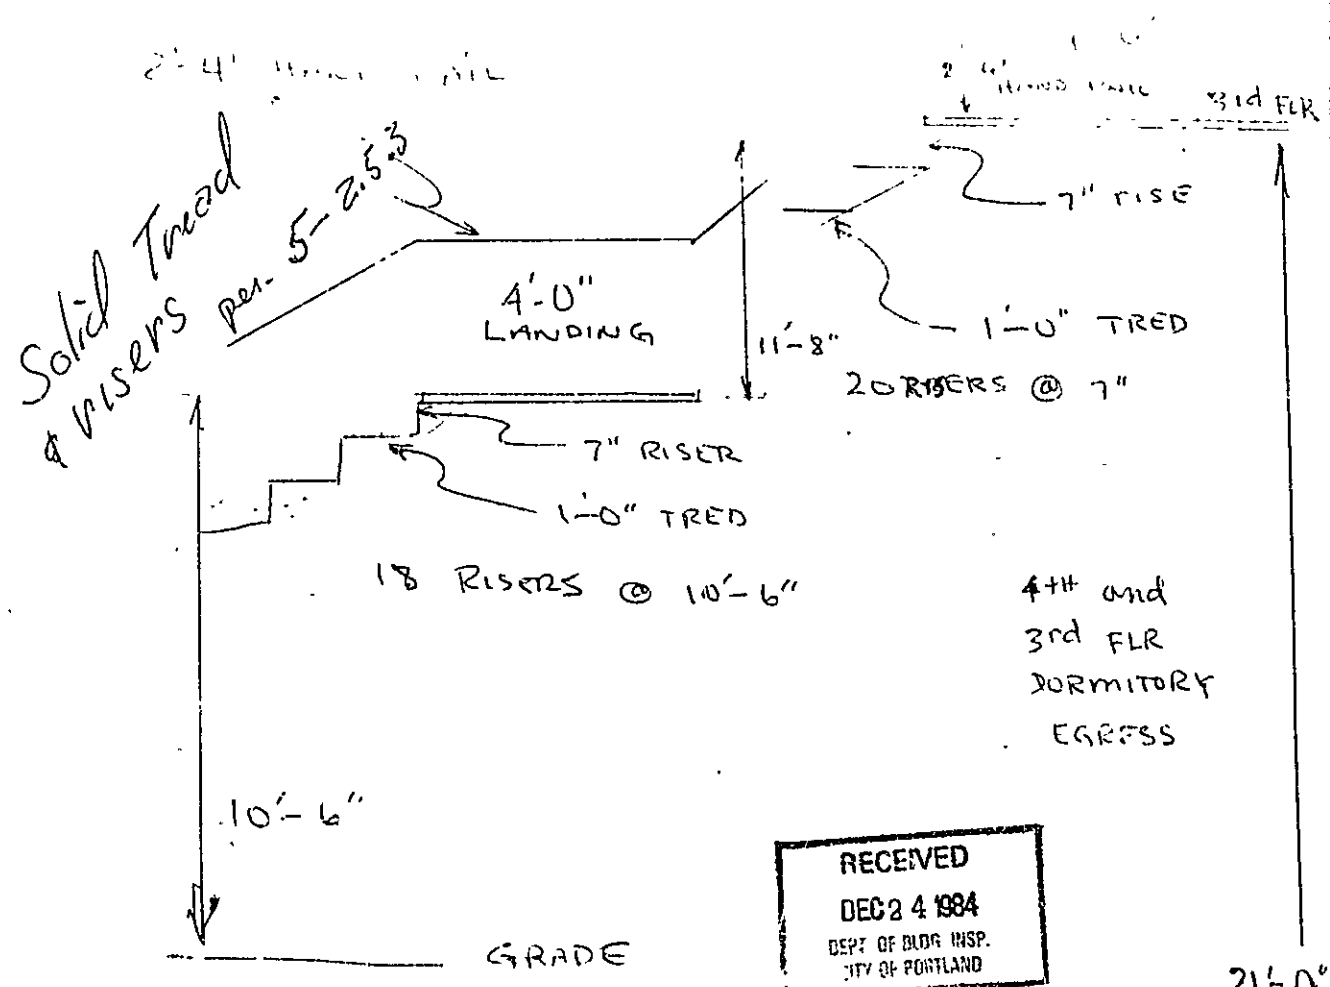 2'-4"
HAND RAIL
3rd FLR
Solid Tread
& risers per 5-2.5.3
7" RISE
4'-0"
LANDING
11'-8"
1'-0" TRED
20 RISERS @ 7"
7" RISER
1'-0" TRED
18 RISERS @ 10'-6"
4TH and
3rd FLR
DORMITORY
EGRESS
10'-6"
RECEIVED
DEC 24 1984
DEPT OF BLDG INSP.
CITY OF PORTLAND
GRADE
21'-0"